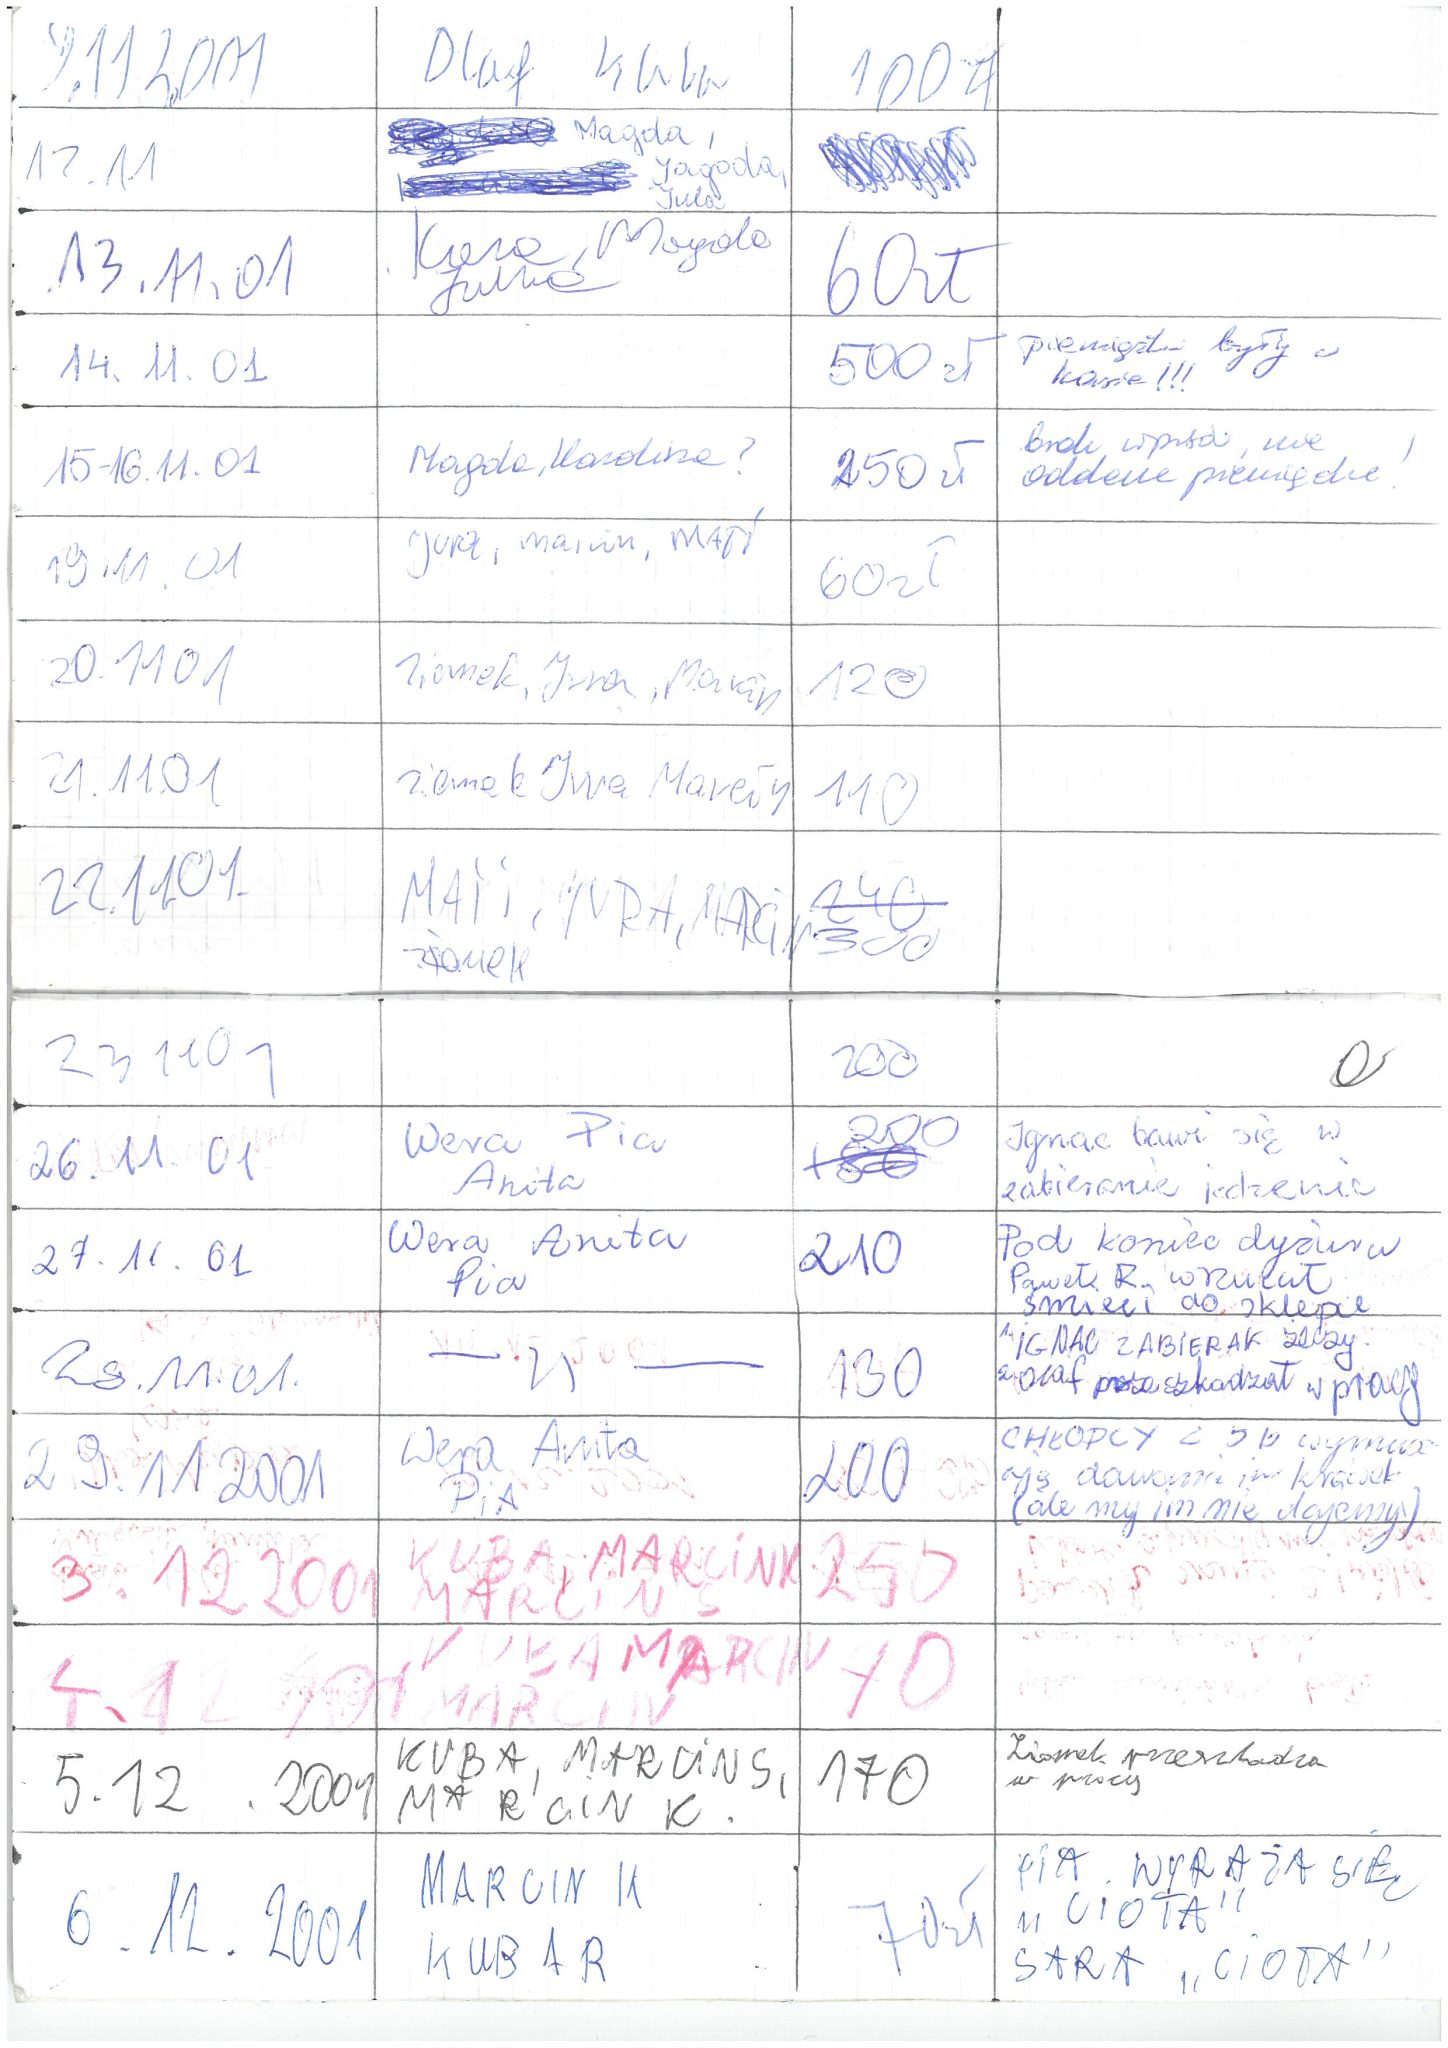 9.11 2001 Olaf Kuba 100 zł
12.11 Magda,
Jagoda,
Jula
13.11.01 Kasia, Magda 60zł
Julka
14.11.01 500 zł pieniądze były w
kasie!!!
15-16.11.01 Magda, Karolina? 250 zł brak wpisu, nie
oddane pieniądze!
19.11.01 Jura, marcin, MATI 60zł
20.1101 ziomek, Jura, Marcin 120
21.1101 ziomek Jura Marcin 110
22.1101. MATI, JURA, MARCIN 240
ziomek 300
23 1101 200
26.11.01 Wera Pia 200 Ignac bawi się w
Anita zabieranie jedzenia
27.11.01 Wera Anita 210 Pod koniec dyżuru
Pia Paweł R. wrzucał
śmieci do sklepu
28.11.01. — 11 — 130 1. IGNAC ZABIERAŁ rzeczy.
2. Olaf przeszkadzał w pracy
29.11 2001 Wera Anita 200 CHŁOPCY z 5 b wymusz-
PIA ają dawanie im krówek
(ale my im nie dajemy)
3.12 2001 KUBA, MARCIN K 250
MARCIN S
4.12 2001 KUBA MARCIN 70
MARCIN
5.12.2001 KUBA, MARCIN S, 170 Ziomek przeszkadza
MARCIN K. w pracy
6.12.2001 MARCIN K 70zł PIA WYRAŻA SIĘ
„CIOTA"
KUBA R SARA „CIOTA"